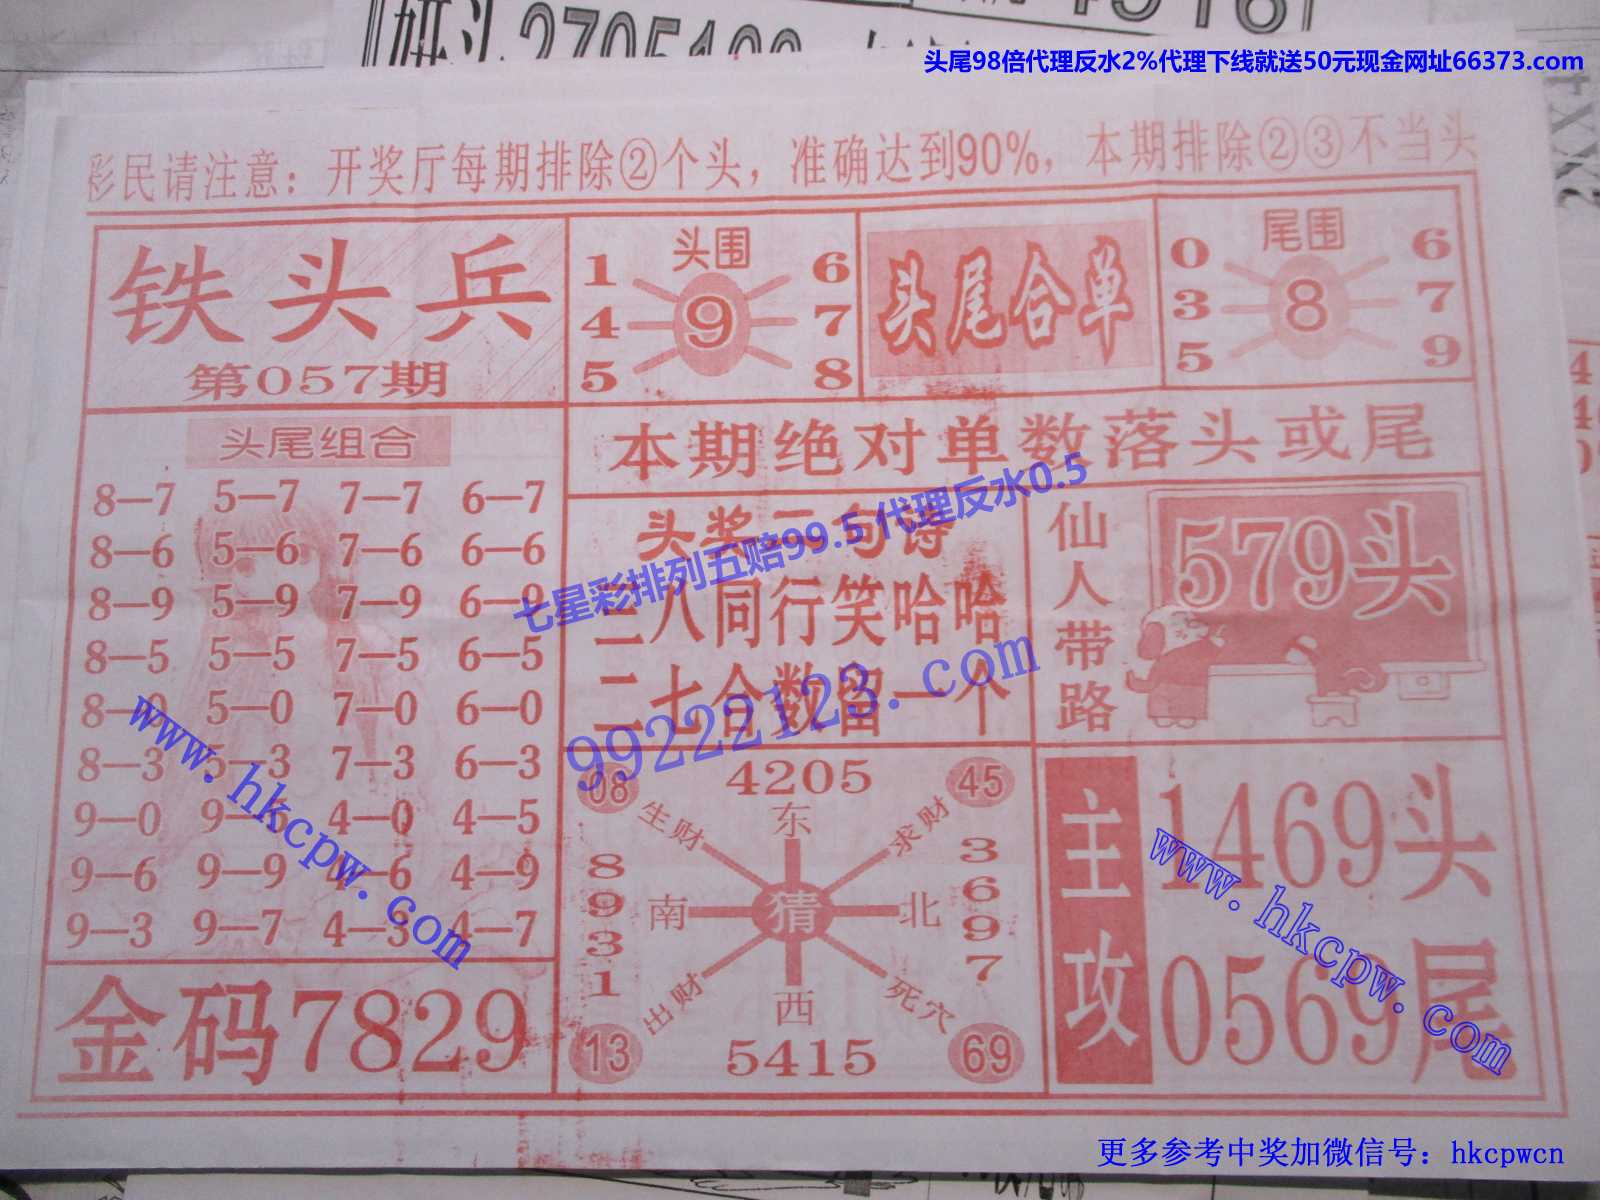 头尾98倍代理反水2%代理下线就送50元现金网址66373.com
彩民请注意：开奖厅每期排除②个头，准确达到90%，本期排除②③不当头
铁头兵
第057期
头围
1 6
4 9 7
5 8
头尾合单
尾围
0 6
3 8 7
5 9
头尾组合
8—7 5—7 7—7 6—7
8—6 5—6 7—6 6—6
8—9 5—9 7—9 6—9
8—5 5—5 7—5 6—5
8—0 5—0 7—0 6—0
8—3 5—3 7—3 6—3
9—0 9—5 4—0 4—5
9—6 9—9 4—6 4—9
9—3 9—7 4—3 4—7
金码7829
本期绝对单数落头或尾
头奖二句诗
三八同行笑哈哈
二七合数留一个
七星彩排列五赔99.5 代理反水0.5
99222123.com
仙人带路
579头
08 4205 45
生财 东 求财
8931 南 猜 北 3697
出财 西 死穴
13 5415 69
主攻
1469头
0569尾
www.hkcpw.com
www.hkcpw.com
更多参考中奖加微信号：hkcpwcn